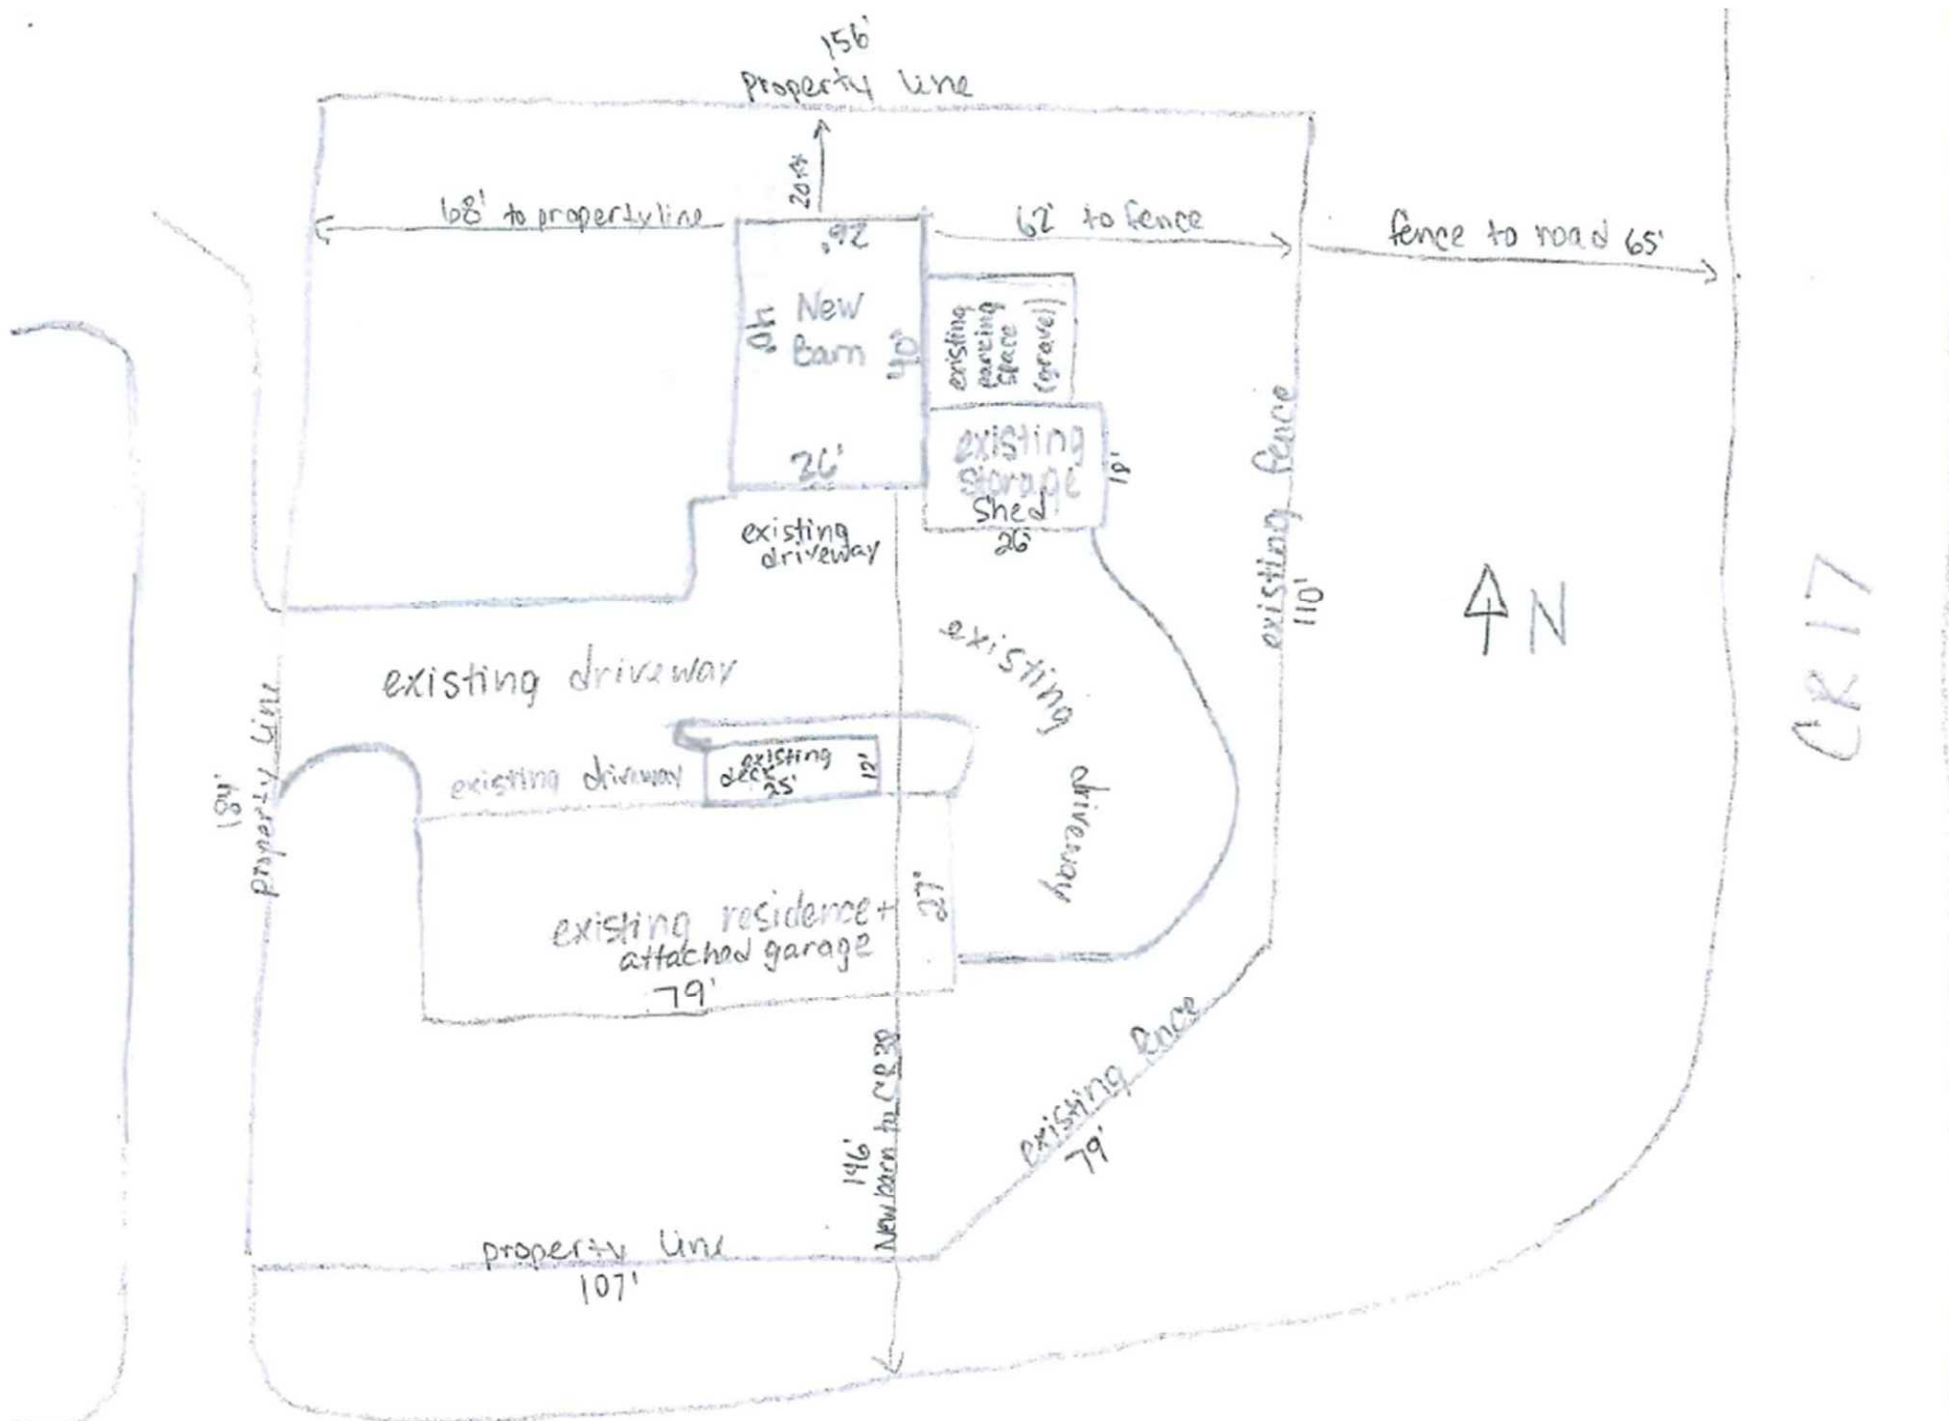 156'
property line
20 ft
68' to property line
62' to fence
fence to road 65'
26'
40'
New
Barn
40'
26'
existing
parking
space
(gravel)
existing
storage
shed
18'
26'
existing
driveway
existing fence
110'
N
CR 17
existing driveway
existing
driveway
existing driveway
existing
deck
25'
12'
184'
property line
existing residence +
attached garage
27'
79'
146'
New barn to CR 38
existing fence
79'
property line
107'